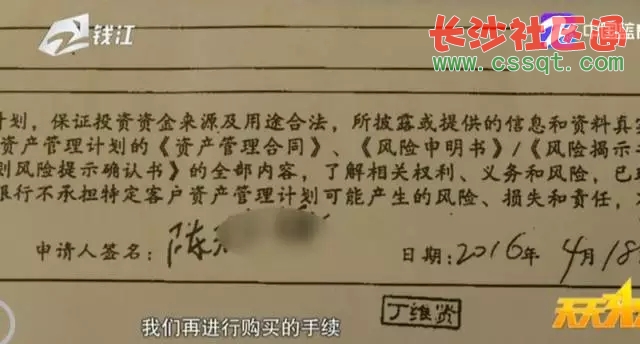 钱江
中国蓝
长沙社区通
www.cssqt.com
计划，保证投资资金来源及用途合法，所披露或提供的信息和资料真实
资产管理计划的《资产管理合同》、《风险申明书》/《风险揭示书
别风险提示确认书》的全部内容，了解相关权利、义务和风险，已
银行不承担特定客户资产管理计划可能产生的风险、损失和责任，
申请人签名：陈
日期：2016年4月18
丁维贤
我们再进行购买的手续
天天